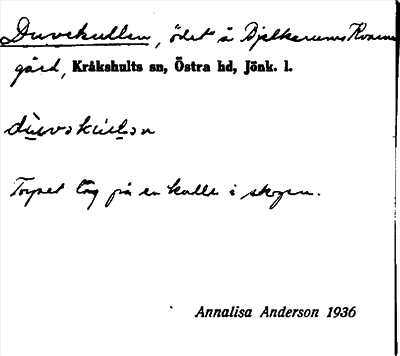 Duvekullen, ödet å Bjelkerums Kvarn
gård, Kråkshults sn, Östra hd, Jönk. l.
Torpet låg på en kulle i skogen.
Annalisa Anderson 1936